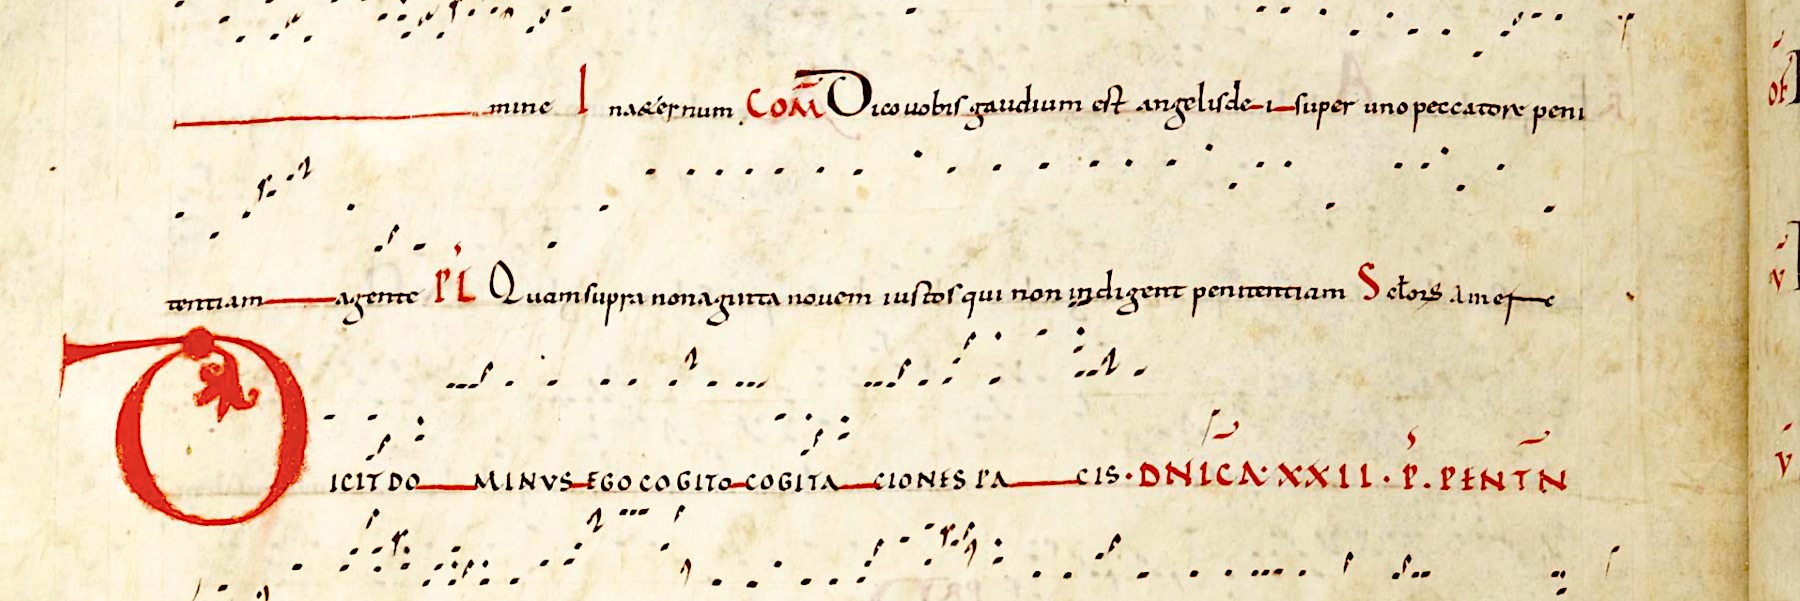 mine I naeternum COM Dico uobis gaudium est angelis dei super uno peccatore peni
tentiam agente Ps Quam supra nonaginta nouem iustos qui non indigent penitentiam S
DICIT DOMINVS EGO COGITO COGITACIONES PACIS · DNICA XXII · P. PENTN